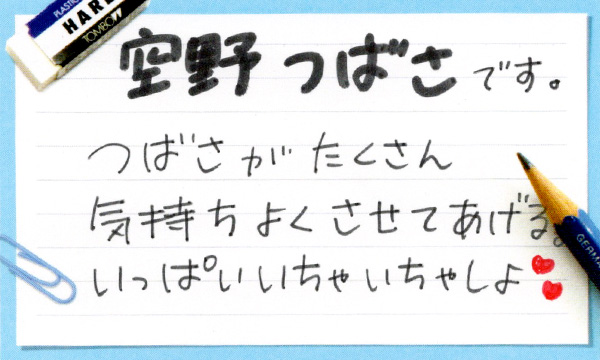 PLASTIC
HARD
TOMBOW
空野つばさです。
つばさがたくさん
気持ちよくさせてあげる。
いっぱいいちゃいちゃしよ
GERMA